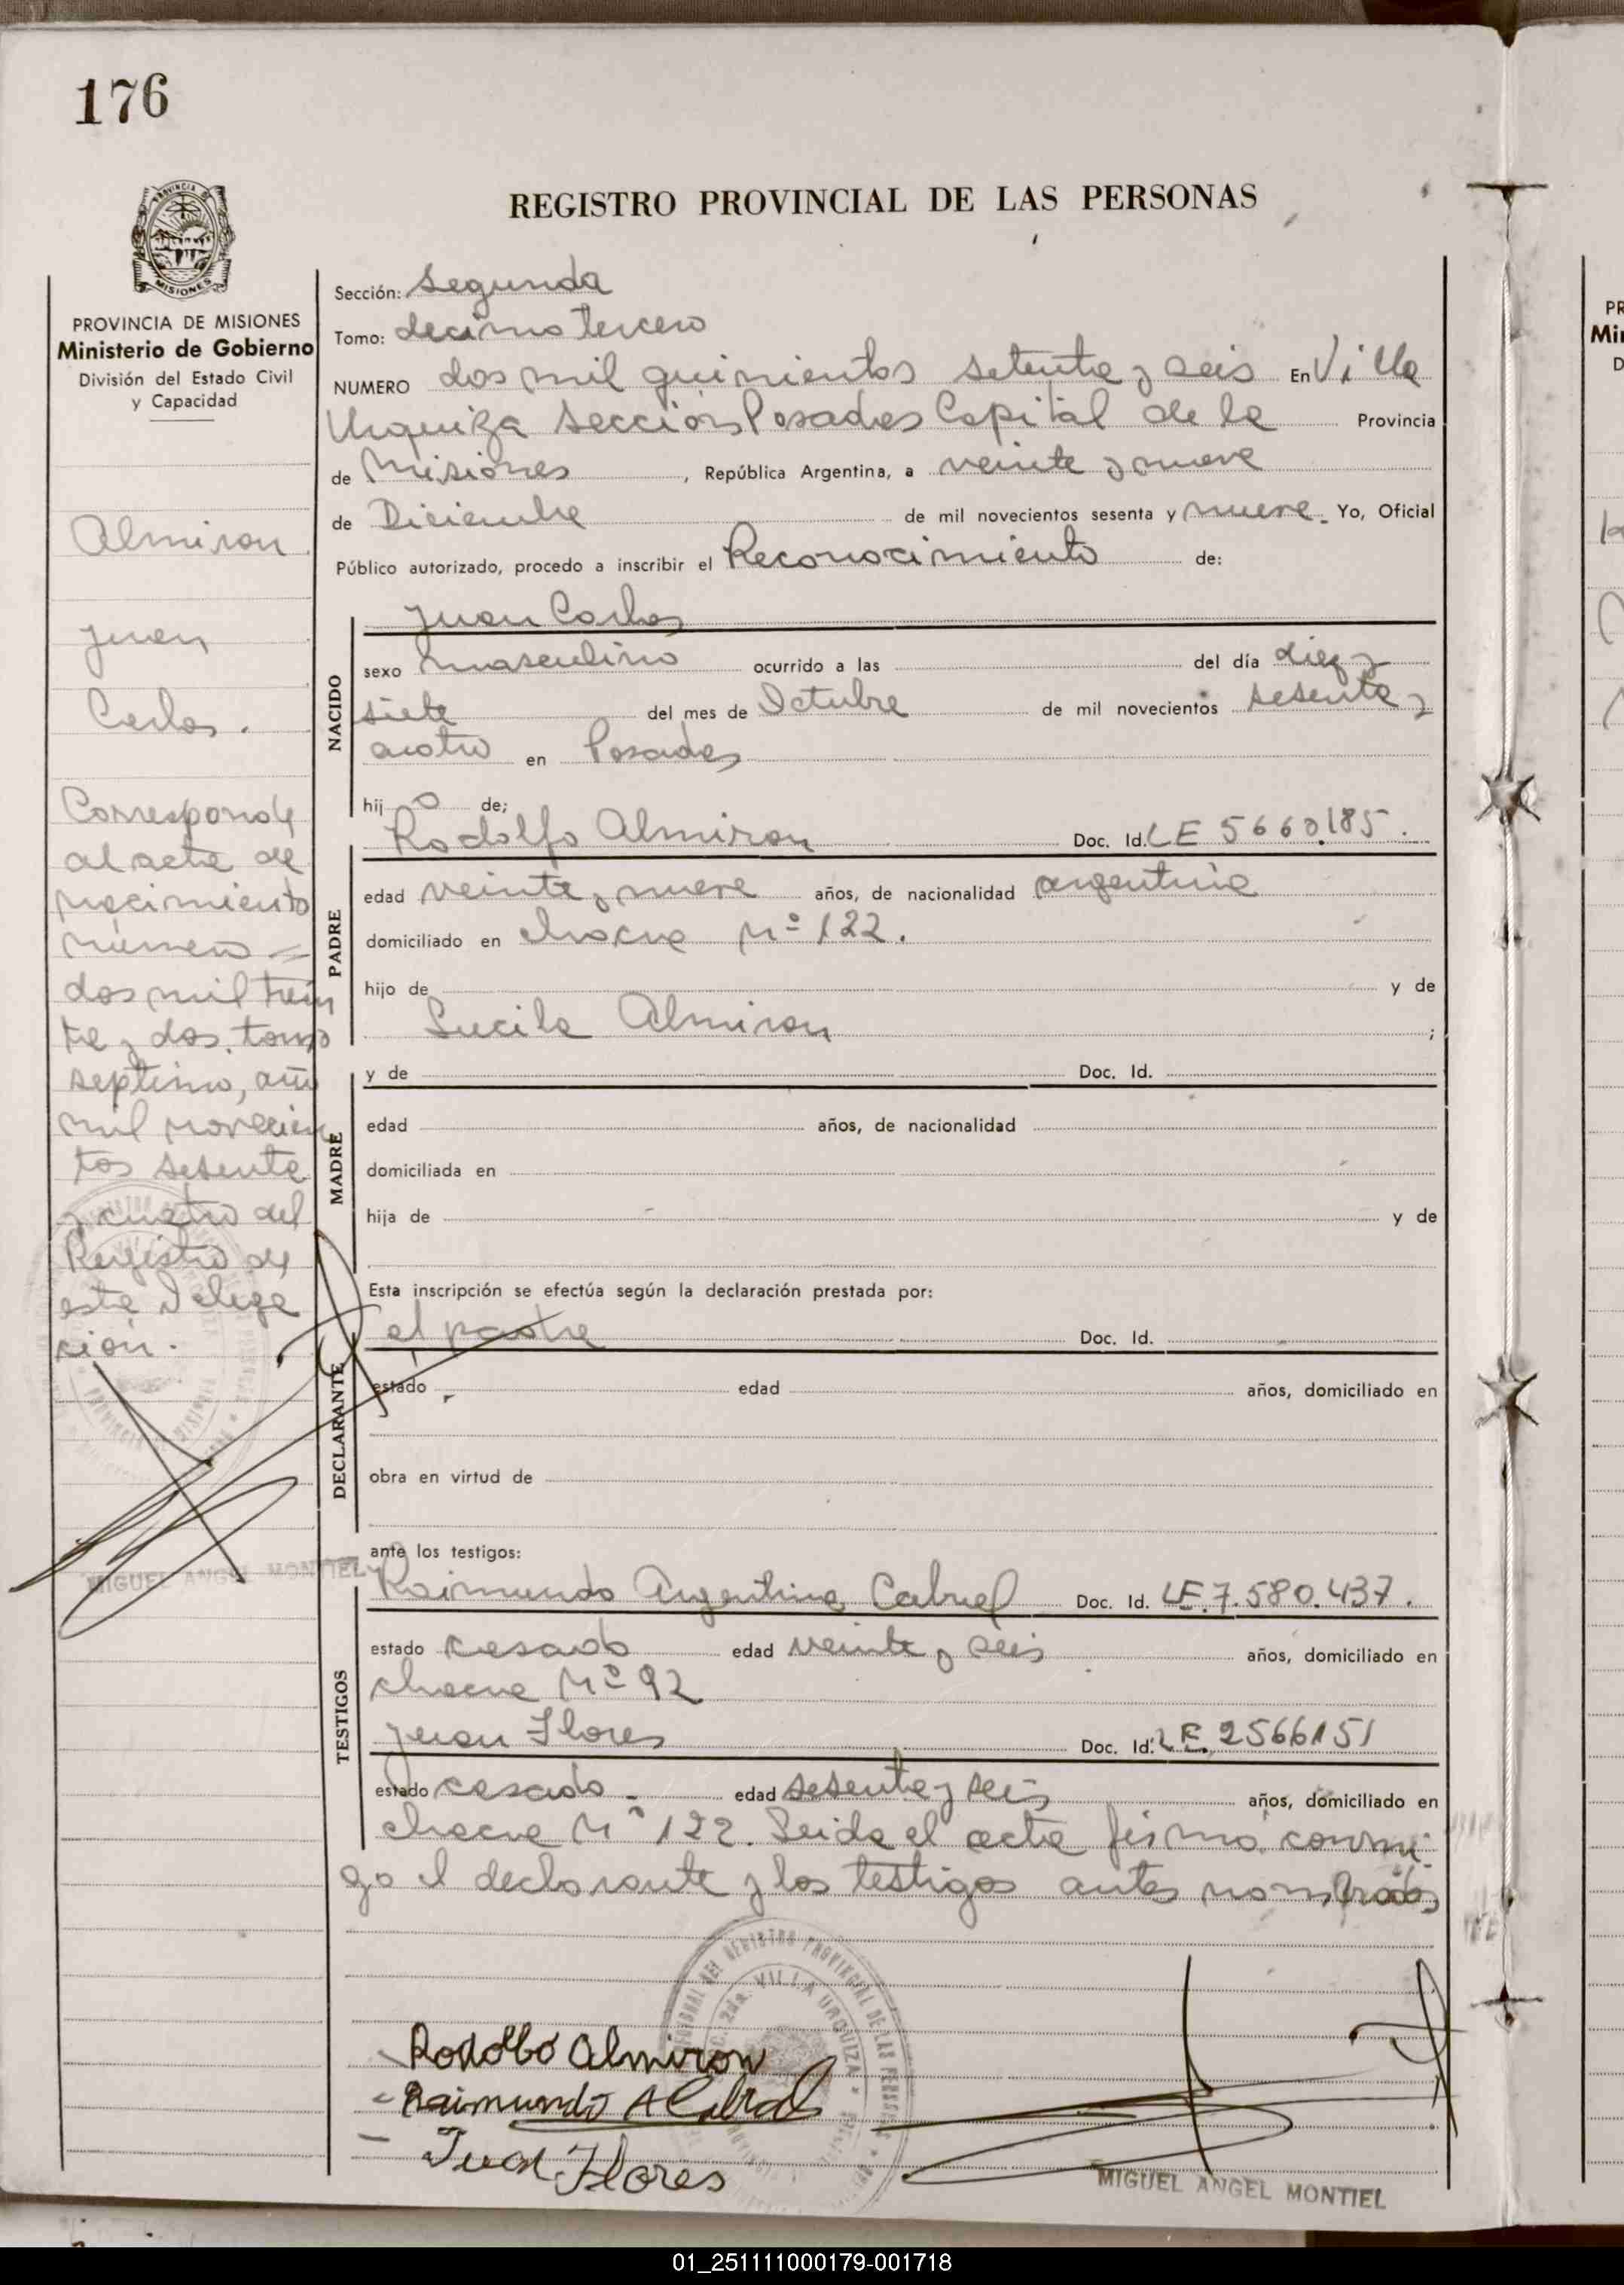 176
REGISTRO PROVINCIAL DE LAS PERSONAS
PROVINCIA DE MISIONES
Ministerio de Gobierno
División del Estado Civil
y Capacidad
Almiron
Juan
Carlos.
Corresponde
al acta de
nacimiento
número =
dos mil trein
ta y dos, tomo
septimo, año
mil novecien
tos sesenta
y cuatro del
Registro de
esta Delega
ción.
MIGUEL ANGEL MONTIEL
Sección: Segunda
Tomo: decimo tercero
NUMERO dos mil quinientos setenta y seis En Villa
Urquiza Sección Posadas Capital de la Provincia
de Misiones, República Argentina, a veinte y nueve
de Diciembre de mil novecientos sesenta y nueve. Yo, Oficial
Público autorizado, procedo a inscribir el Reconocimiento de:
Juan Carlos
NACIDO
sexo masculino ocurrido a las del día diez y
siete del mes de Octubre de mil novecientos sesenta y
cuatro en Posadas
hij o de;
Rodolfo Almiron Doc. Id. LE 5660185.
PADRE
edad veinte y nueve años, de nacionalidad argentina
domiciliado en chacra Nº 122.
hijo de y de
Lucila Almiron ;
y de Doc. Id.
MADRE
edad años, de nacionalidad
domiciliada en
hija de y de
Esta inscripción se efectúa según la declaración prestada por:
el padre Doc. Id.
DECLARANTE
estado edad años, domiciliado en
obra en virtud de
ante los testigos:
Raimundo Argentino Cabral Doc. Id. LE.7.580.437.
TESTIGOS
estado casado edad veinte y seis años, domiciliado en
chacra Nº 92
Juan Flores Doc. Id. LE. 2566151
estado casado - edad sesenta y seis años, domiciliado en
chacra Nº 122. Leida el acta firma conmi-
go el declarante y los testigos antes nombrados
Rodolfo Almiron
Raimundo A Cabral
Juan Flores
VILLA URQUIZA
MIGUEL ANGEL MONTIEL
01_251111000179-001718